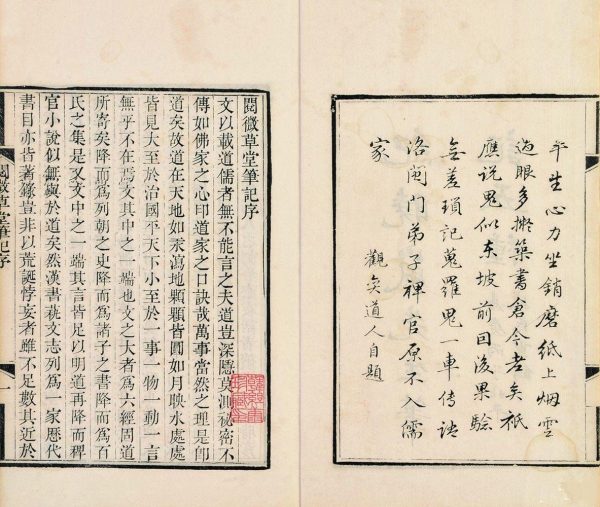 平生心力坐銷磨紙上烟雲
過眼多擬築書倉今老矣衹
應說鬼似東坡前因後果驗
無差瑣記蒐羅鬼一車傳語
洛閩門弟子稗官原不入儒
家
觀弈道人自題
閱微草堂筆記序
文以載道儒者無不能言之夫道豈深隱莫測祕密不
傳如佛家之心印道家之口訣哉萬事當然之理是卽
道矣故道在天地如汞瀉地顆顆皆圓如月映水處處
皆見大至於治國平天下小至於一事一物一動一言
無乎不在焉文其中之一端也文之大者爲六經固道
所寄矣降而爲列朝之史降而爲諸子之書降而爲百
氏之集是又文中之一端其言皆足以明道再降而稗
官小說似無與於道矣然漢書藝文志列爲一家歷代
書目亦皆著錄豈非以荒誕悖妄者雖不足數其近於
閱微草堂筆記序 一